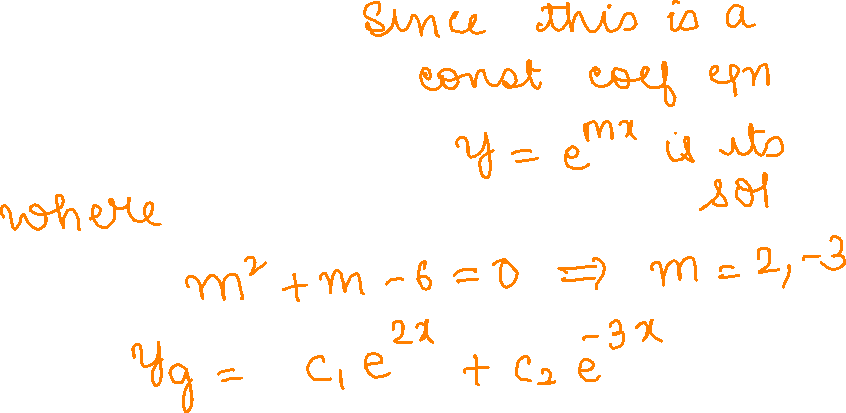 Since this is a
const coef eqn
y = e^{mx} is its
sol
where
m² + m - 6 = 0 ⇒ m = 2, -3
y_g = c₁ e^{2x} + c₂ e^{-3x}